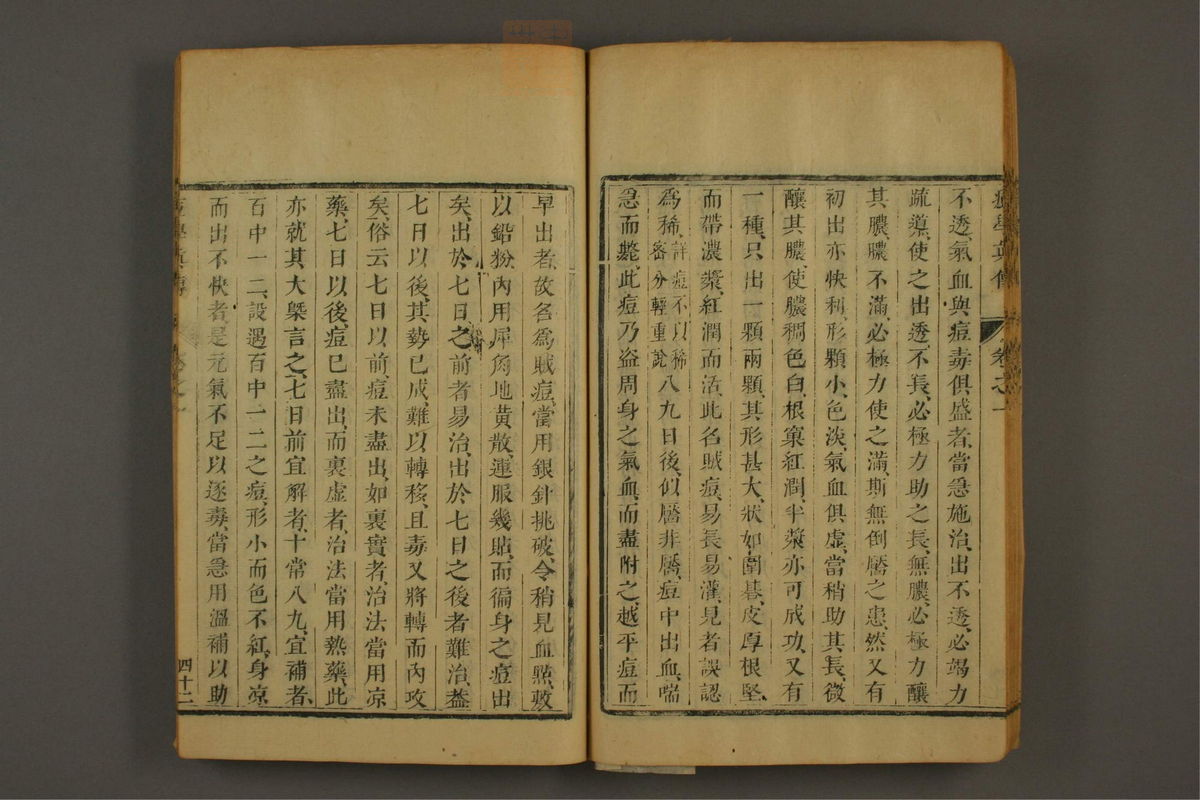 痘學眞傳 卷之一
不透、氣血與痘毒俱盛者、當急施治、出不透、必竭力
疏導、使之出透、不長、必極力助之長、無膿、必極力釀
其膿、膿不滿、必極力使之滿、斯無倒靨之患、然又有
初出亦快利、形顆小、色淡、氣血俱虛、當稍助其長、微
釀其膿、使膿稠色白、根窠紅潤、半漿亦可成功、又有
一種、只出一顆兩顆、其形甚大、狀如圍碁、皮厚根堅、
而帶濃漿、紅潤而活、此名賊痘、易長易灌、見者誤認
爲稀、詳痘不以稀密分輕重說八九日後、似靨非靨、痘中出血、喘
急而斃、此痘乃盜周身之氣血、而盡附之、越乎痘而
早出者、故名爲賊痘、當用銀針挑破、令稍見血㸃、敷
以鉛粉、內用犀角地黃散、連服幾貼、而徧身之痘出
矣、出於七日之前者易治、出於七日之後者難治、葢
七日以後、其勢已成、難以轉移、且毒又將轉而內攻
矣、俗云七日以前、痘未盡出、如裏實者、治法當用凉
藥、七日以後、痘已盡出、而裏虛者、治法當用熱藥、此
亦就其大槩言之、七日前宜解者、十常八九、宜補者、
百中一二、設遇百中一二之痘、形小而色不紅、身凉
而出不快者、是元氣不足以逐毒、當急用溫補以助
四十二